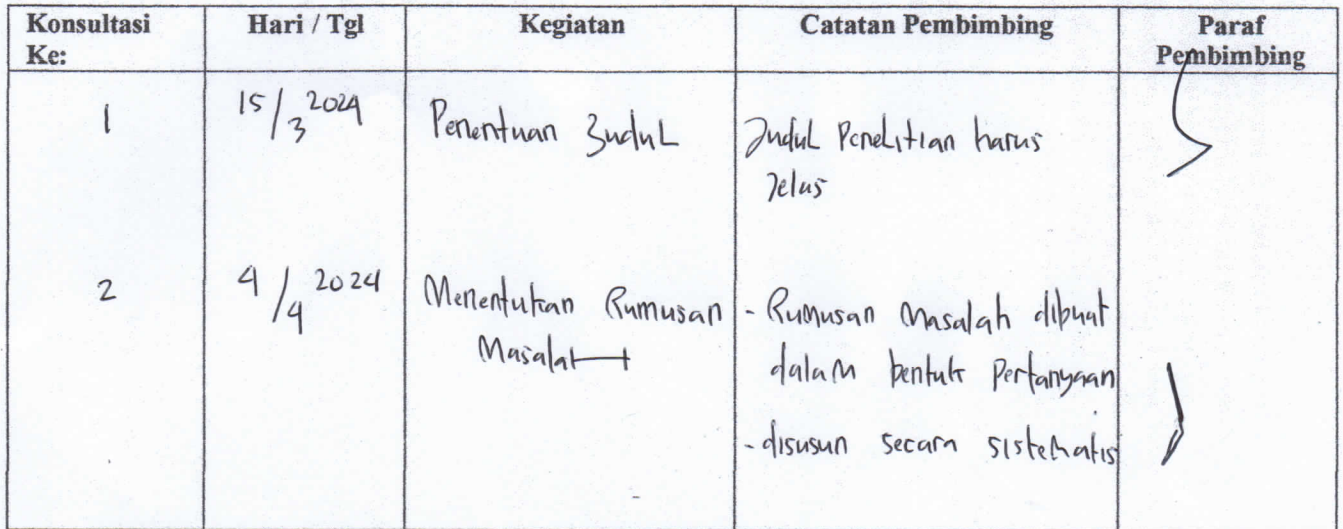 Konsultasi Ke: Hari / Tgl Kegiatan Catatan Pembimbing Paraf Pembimbing
1 15/3 2024 Penentuan Judul Judul Penelitian harus
Jelas
2 4/4 2024 Menentukan Rumusan - Rumusan Masalah dibuat
Masalah dalam bentuk Pertanyaan
- disusun secara sistematis